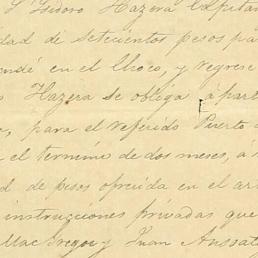 S. Isidoro Hazera Capitan
dad de setecientos pesos pa
endé en el Choco, y regrese
Hazera se obliga á part
para el referido Puerto
el termino de dos meses, á
d de pesos ofrecida en el ar
instrucciones privadas que
Mac Gregor y Juan Aussat